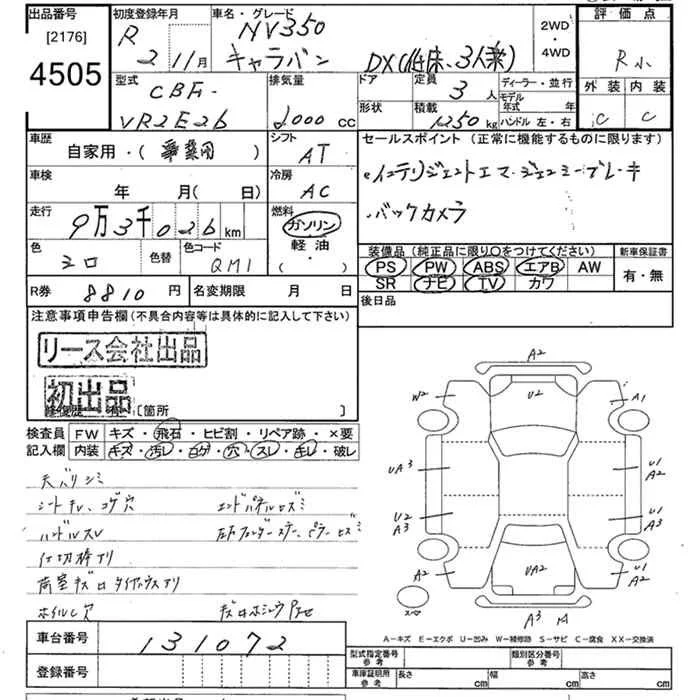 出品番号
[2176]
4505
初度登録年月
R 2 11月
車名・グレード
NV350
キャラバン DX(低床、3人乗)
2WD
・
4WD
評価点
R小
外装 内装
C C
型式
CBF-
VR2E26
排気量
2000 cc
ドア
形状
定員
3 人
積載
1250 kg
ディーラー・並行
モデル
年式 年
ハンドル 左・右
車歴
自家用・( 事業用 )
シフト
AT
車検
年 月( 日)
冷房
AC
走行
9万3千026 km
燃料
ガソリン
軽油
( ・ )
色
シロ
色替
色コード
QM1
セールスポイント (正常に機能するものに限ります)
インテリジェントエマージェンシーブレーキ
バックカメラ
装備品(純正品に限り○をつけてください)
PS PW ABS エアB AW
SR ナビ TV カワ
新車保証書
有・無
R券 8810 円
名変期限 月 日
後日品
注意事項申告欄(不具合内容等は具体的に記入して下さい)
リース会社出品
初出品
[箇所 ]
検査員
記入欄
FW キズ・飛石・ヒビ割・リペア跡・×要
内装 キズ・汚レ・コゲ・穴・スレ・キレ・破レ
天バリシミ
シートキレ、コゲ穴
ハンドルスレ
仕切枠アリ
エンドパネルヒズミ
A2
W2 U2 A1
UA3 U1 A3
U2 A3 U1 A3
A2 UA2 U1 A2
A3
スペア
A-キズ E-エクボ U-凹み W-補修跡 S-サビ C-腐食 XX-交換済
車台番号 131072
登録番号
型式指定番号
参考
類別区分番号
参考
車庫証明用
参考
長さ cm 幅 cm 高さ cm